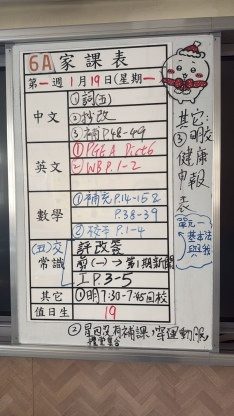 6A 家課表
第一週 1月19日(星期一)
中文
① 詞(五)
② 抄改
③ 補P.48-49
英文
① PGE A Dict 6
② WB P.1-2
數學
① 補充 P.14-15
P.38-39
② P.1-4
(五)交
常識
評改簽
第1期新聞
P.3-5
其它
① 明7:30-7:45回校
值日生
19
② 星四沒有補課,穿運動服
其它:
③ 明交
健康
申報
表
單元
基本法
與我